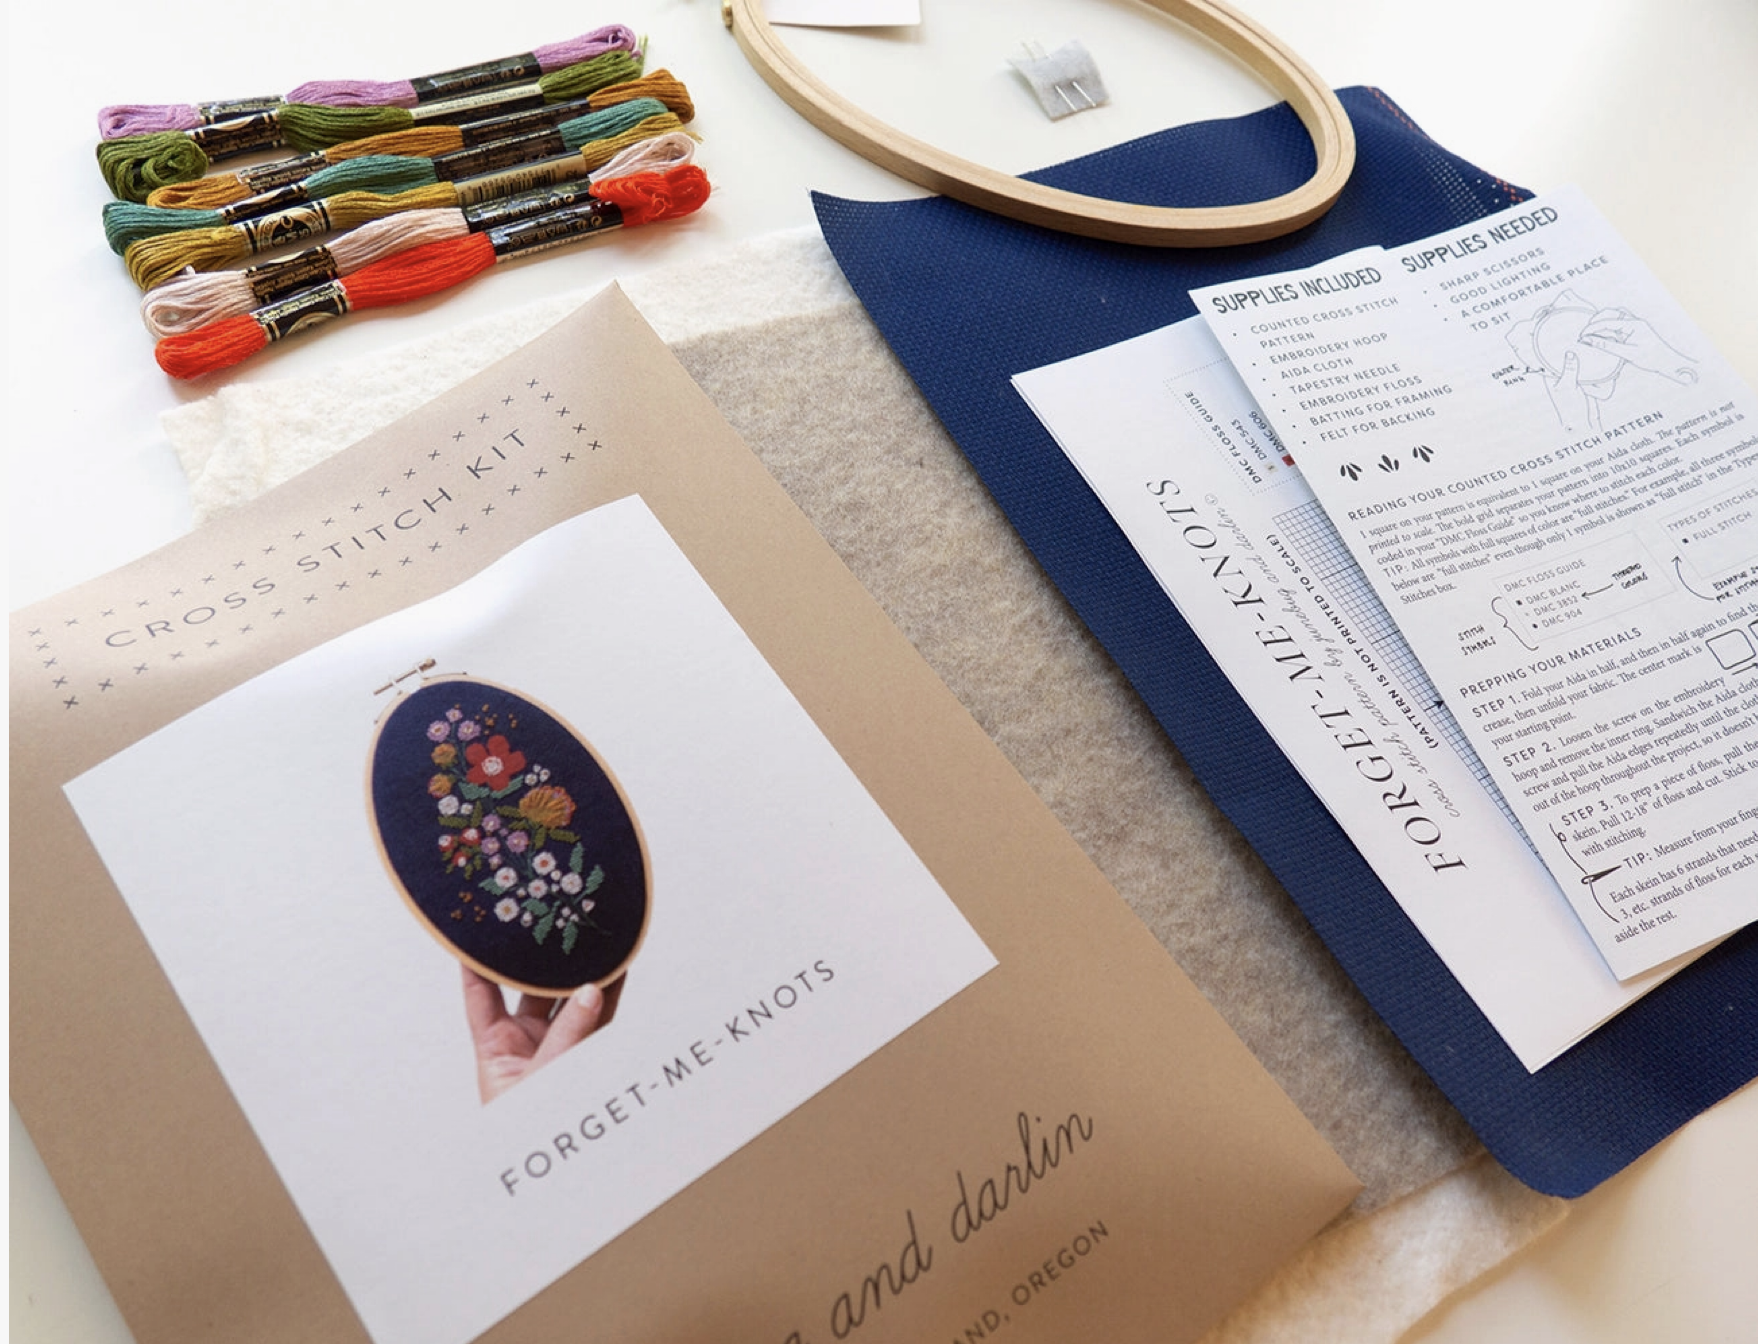 CROSS STITCH KIT
FORGET-ME-KNOTS
and darlin
OREGON
FORGET-ME-KNOTS
cross stitch pattern by gunsbug and darlin ©
(PATTERN IS NOT PRINTED TO SCALE)
DMC FLOSS GUIDE
DMC 543
DMC 606
SUPPLIES INCLUDED
• COUNTED CROSS STITCH
PATTERN
• EMBROIDERY HOOP
• AIDA CLOTH
• TAPESTRY NEEDLE
• EMBROIDERY FLOSS
• BATTING FOR FRAMING
• FELT FOR BACKING
SUPPLIES NEEDED
• SHARP SCISSORS
• GOOD LIGHTING
• A COMFORTABLE PLACE
TO SIT
READING YOUR COUNTED CROSS STITCH PATTERN
1 square on your pattern is equivalent to 1 square on your Aida cloth. The pattern is not
printed to scale. The bold grid separates your pattern into 10x10 squares. Each symbol is
coded in your "DMC Floss Guide" so you know where to stitch each color.
TIP: All symbols with full squares of color are "full stitches." For example, all three symbols
below are "full stitches" even though only 1 symbol is shown as "full stitch" in the Types
Stitches box.
DMC FLOSS GUIDE
DMC BLANC
DMC 3852
DMC 904
STITCH
SYMBOLS
THREAD
COLORS
TYPES OF STITCHES
FULL STITCH
EXAMPLE
PREPPING YOUR MATERIALS
STEP 1. Fold your Aida in half, and then in half again to find the
crease, then unfold your fabric. The center mark is
your starting point.
STEP 2. Loosen the screw on the embroidery
hoop and remove the inner ring. Sandwich the Aida cloth
screw and pull the Aida edges repeatedly until the
out of the hoop throughout the project, so it doesn't
STEP 3. To prep a piece of floss, pull
skein. Pull 12-18" of floss and cut. Stick to
with stitching.
TIP: Measure from your
Each skein has 6 strands that need
3, etc. strands of floss for each
aside the rest.